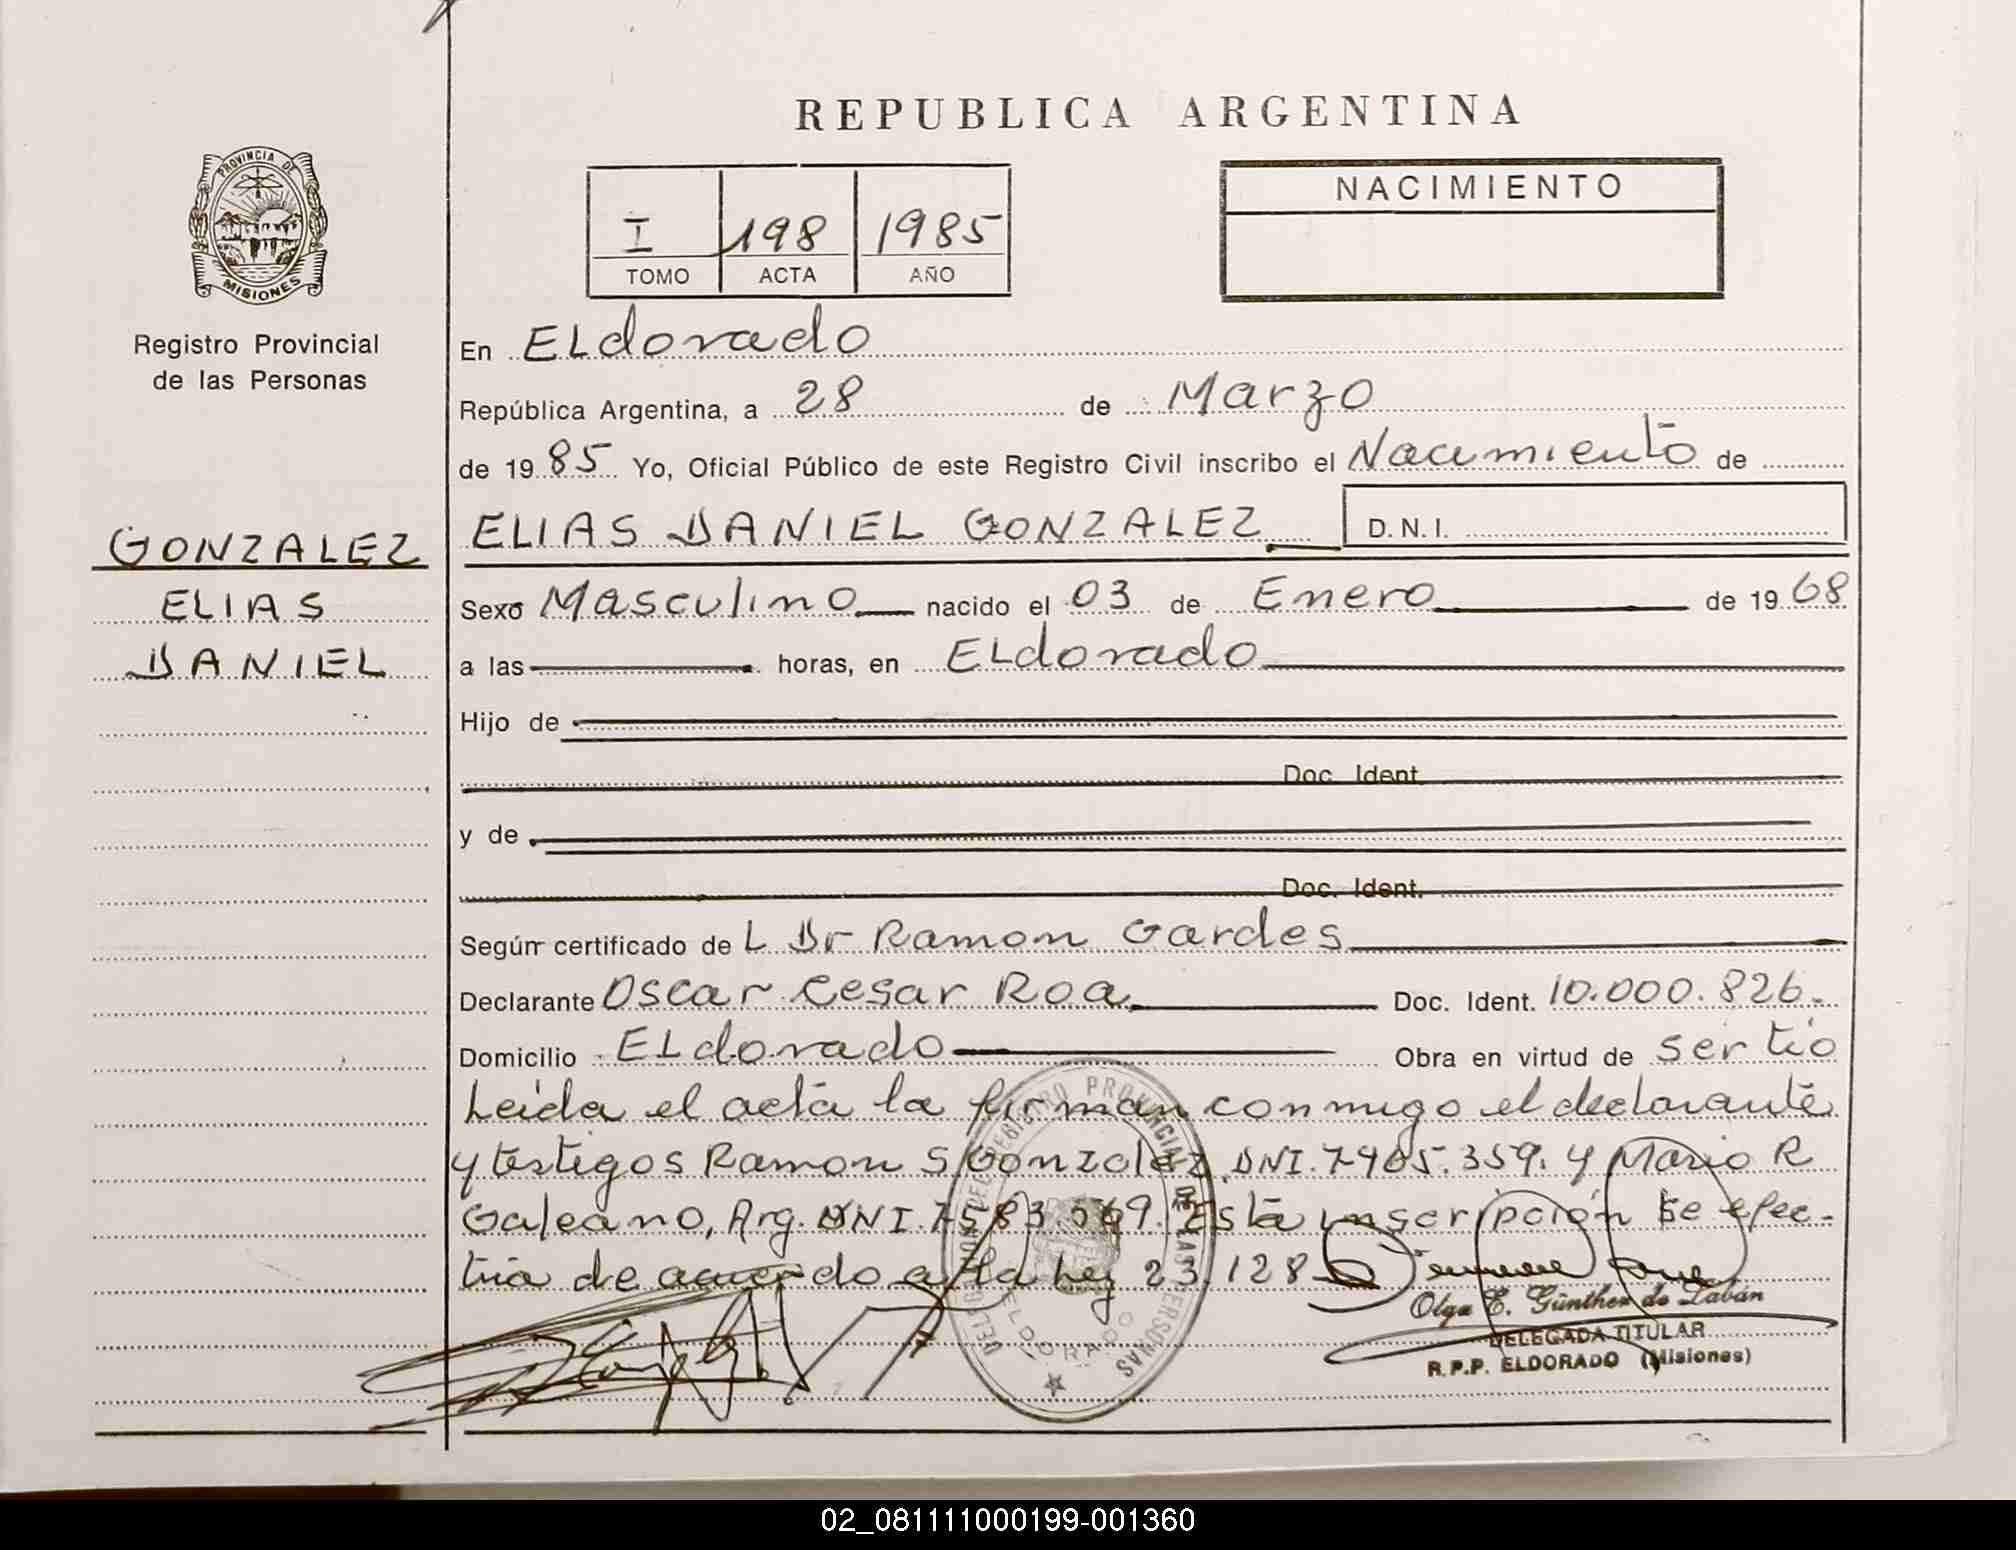 REPUBLICA ARGENTINA
PROVINCIA DE
MISIONES
Registro Provincial
de las Personas
I 198 1985
TOMO ACTA AÑO
NACIMIENTO
En ELdorado
República Argentina, a 28 de Marzo
de 19 85 Yo, Oficial Público de este Registro Civil inscribo el Nacimiento de
GONZALEZ
ELIAS
DANIEL
ELIAS DANIEL GONZALEZ D.N.I.
Sexo Masculino nacido el 03 de Enero de 19 68
a las horas, en ELdorado
Hijo de
Doc. Ident.
y de
Doc. Ident.
Según certificado de L Dr Ramon Gardes
Declarante Oscar Cesar Roa Doc. Ident. 10.000.826.
Domicilio ELdorado Obra en virtud de ser tio
Leida el acta la firman conmigo el declarante
y testigos Ramon S Gonzalez DNI. 7.465.359. y Mario R
Galeano, Arg. DNI. 7583.569. Esta inscripción se efec-
tua de acuerdo a la Ley 23.128
DELEGACION DEL REGISTRO PROVINCIAL DE LAS PERSONAS
ELDORADO
Olga E. Günther de Labán
DELEGADA TITULAR
R.P.P. ELDORADO (Misiones)
02_081111000199-001360